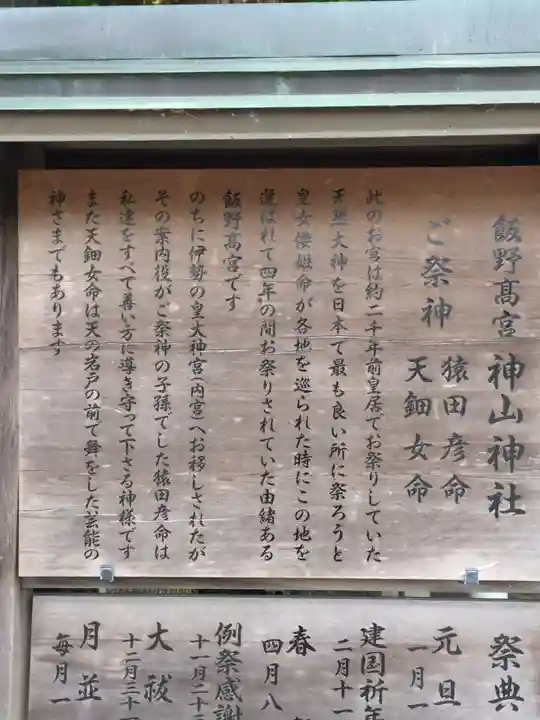 飯野髙宮 神山神社
ご祭神 猿田彦命
天鈿女命
此のお宮は約二千年前皇居でお祭りしていた
天照大神を日本で最も良い所に祭ろうと
皇女倭姫命が各地を巡られた時にこの地を
選ばれて四年の間お祭りされていた由緒ある
飯野髙宮です
のちに伊勢の皇大神宮(内宮)へお移しされたが
その案内役がご祭神の子孫でした猿田彦命は
私達をすべて善い方に導き守って下さる神様です
また天鈿女命は天の岩戸の前で舞をした芸能の
神さまでもあります
祭典
元旦
一月一
建国祈年
二月十一
春
四月八
例祭感謝
十一月二十三
大祓
十二月三十一
月並
毎月一